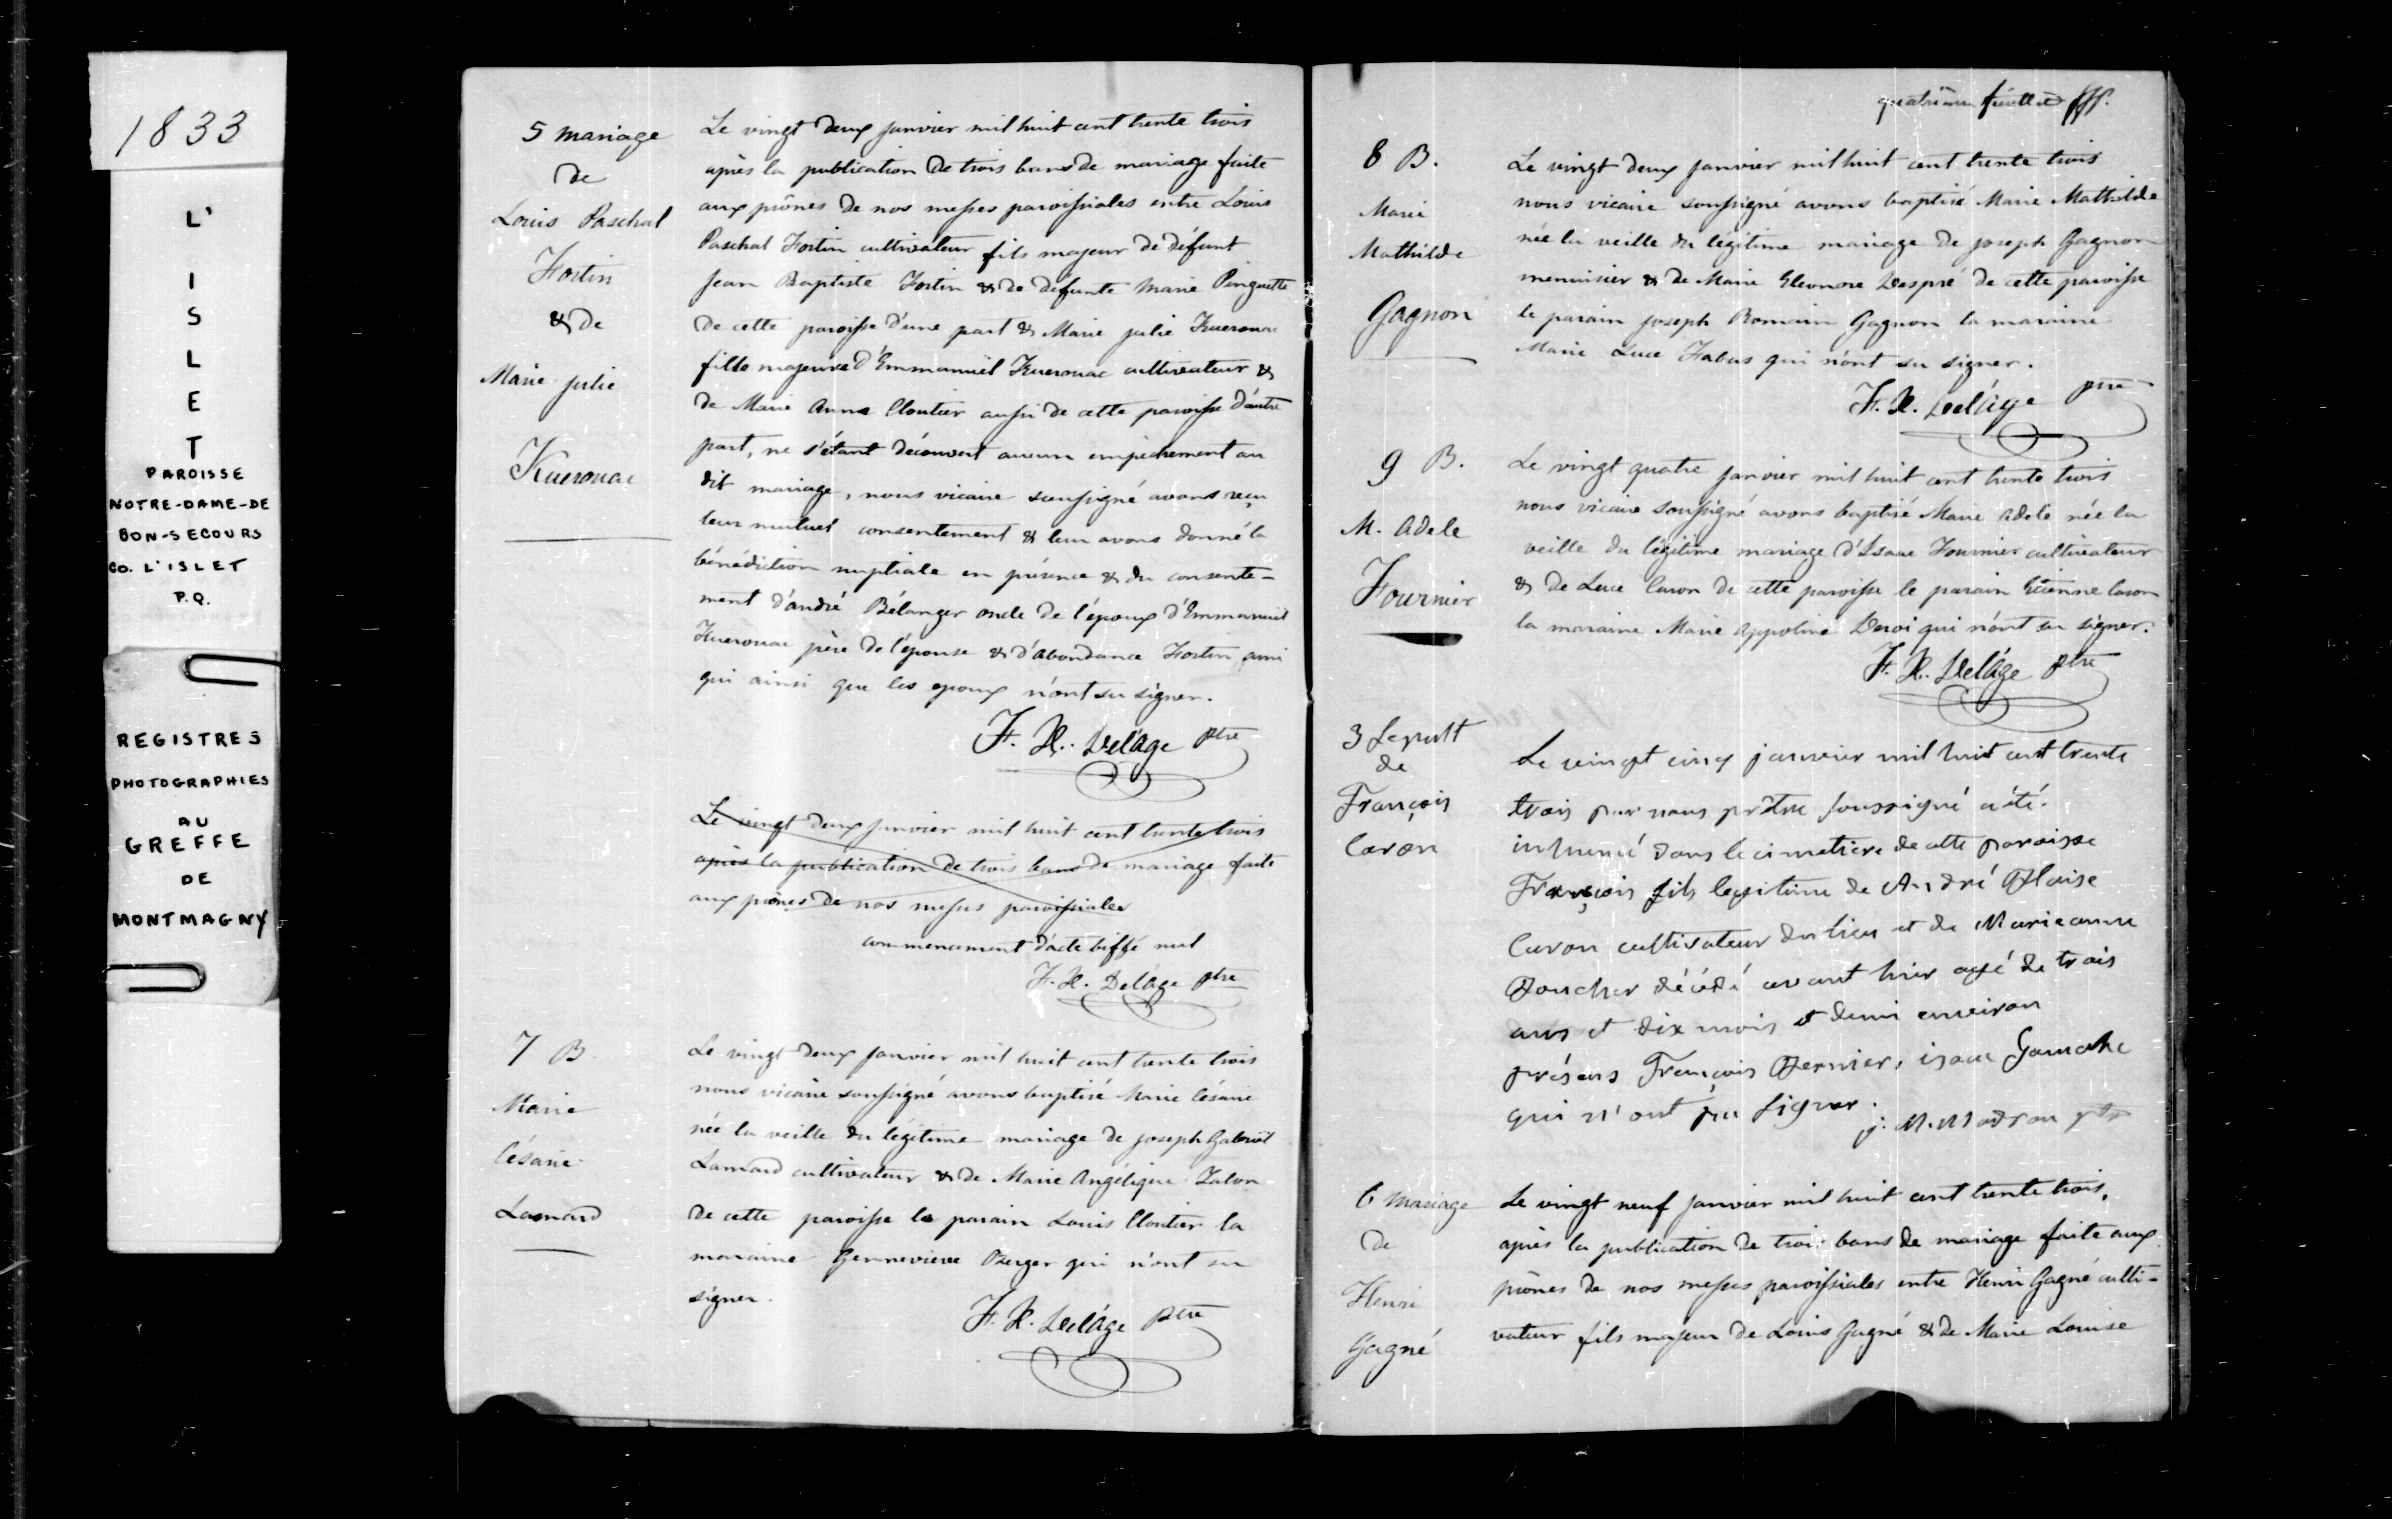 1833
L'
I
S
L
E
T
PAROISSE
NOTRE-DAME-DE
BON-SECOURS
CO. L'ISLET
P.Q.
REGISTRES
PHOTOGRAPHIES
AU
GREFFE
DE
MONTMAGNY
5 mariage
de
Louis Paschal
Fortin
& de
Marie julie
Kuerouac
Le vingt deux janvier mil huit cent trente trois
après la publication de trois bans de mariage faite
aux prônes de nos messes paroissiales entre Louis
Paschal Fortin cultivateur fils majeur de défunt
Jean Baptiste Fortin & de défunte Marie Pinguette
de cette paroisse d'une part & Marie julie Kuerouac
fille majeure d'Emmanuel Kuerouac cultivateur &
de Marie Anne Cloutier aussi de cette paroisse d'autre
part, ne s'étant découvert aucun empêchement au
dit mariage, nous vicaire soussigné avons reçu
leur mutuel consentement & leur avons donné la
bénédiction nuptiale en présence & du consente-
ment d'andré Bélanger oncle de l'époux d'Emmanuel
Kuerouac père de l'épouse & d'Abondance Fortin ami
qui ainsi que les epoux n'ont su signer.
F. X. Delâge ptre
Le vingt deux janvier mil huit cent trente trois
après la publication de trois bans de mariage faite
aux prônes de nos messes paroissiales
commencement d'acte biffé nul
F. X. Delâge ptre
7 B
Marie
Césarie
Lamard
Le vingt deux janvier mil huit cent trente trois
nous vicaire soussigné avons baptisé Marie Césarie
née la veille du légitime mariage de joseph Gabriel
Lamard cultivateur & de Marie Angélique Talon
de cette paroisse le parain Louis Cloutier la
maraine Gennevieve Berger qui n'ont su
signer.
F. X. Delâge ptre
quatrième feuillet
8 B.
Marie
Mathilde
Gagnon
Le vingt deux janvier mil huit cent trente trois
nous vicaire soussigné avons baptisé Marie Mathilde
née la veille du légitime mariage de joseph Gagnon
menuisier & de Marie Eleonore Despré de cette paroisse
le parain joseph Romain Gagnon la maraine
Marie Luce Fabas qui n'ont su signer.
F. X. Delâge ptre
9 B.
M. Adele
Fournier
Le vingt quatre janvier mil huit cent trente trois
nous vicaire soussigné avons baptisé Marie Adele née la
veille du légitime mariage d'Isaac Fournier cultivateur
& de Luce Caron de cette paroisse le parain Etienne Caron
la maraine Marie Appoline Deroi qui n'ont su signer.
F. X. Delâge ptre
3 Sepult
de
François
Caron
Le vingt cinq janvier mil huit cent trente
trois par nous prêtre soussigné a été
inhumé dans le cimetiere de cette paroisse
François fils legitime de André Blaise
Caron cultivateur du lieu et de Marieanne
Boucher décédé avant hier agé de trois
ans et dix mois et demi environ
présens François Bernier, isaac Gamache
qui n'ont pu signer.
j. M. Madran ptr
6 mariage
de
Henri
Gagné
Le vingt neuf janvier mil huit cent trente trois,
après la publication de trois bans de mariage faite aux
prônes de nos messes paroissiales entre Henri Gagné culti-
vateur fils majeur de Louis Gagné & de Marie Louise